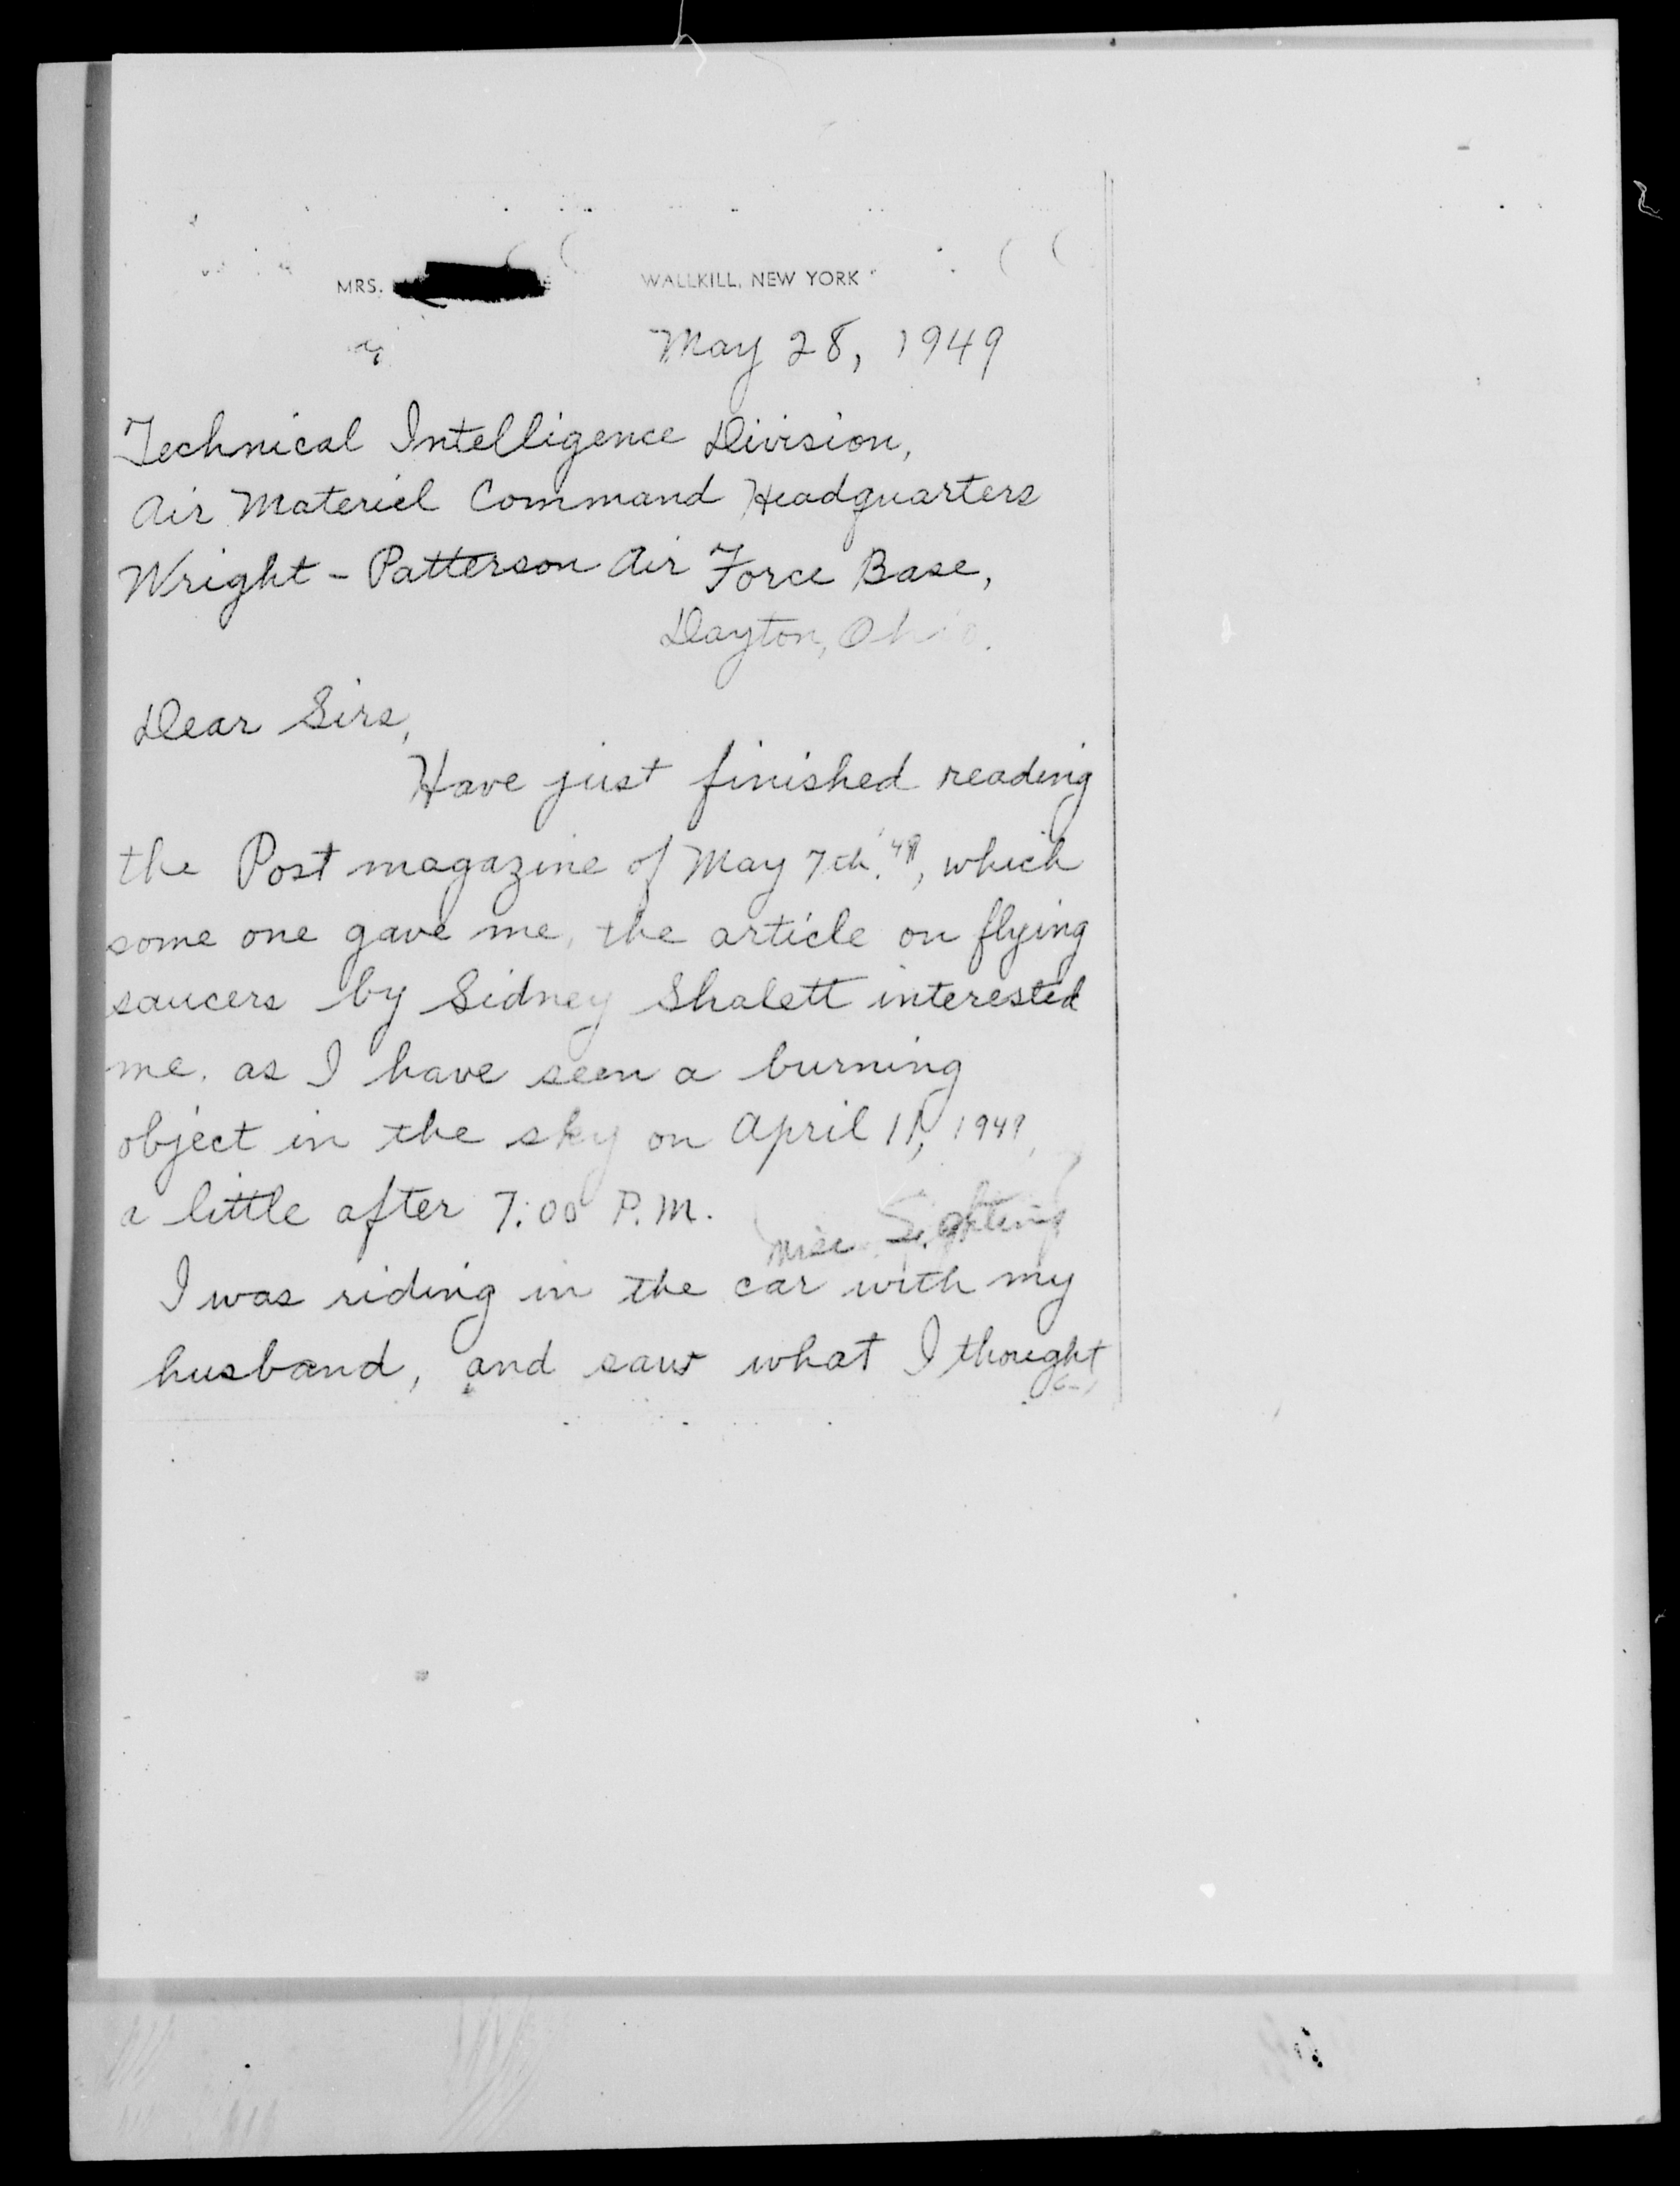 MRS. WALLKILL, NEW YORK
May 28, 1949
Technical Intelligence Division,
Air Materiel Command Headquarters
Wright - Patterson Air Force Base,
Dayton, Ohio.
Dear Sirs,
Have just finished reading
the Post magazine of May 7th. '49, which
some one gave me, the article on flying
saucers by Sidney Shalett interested
me. as I have seen a burning
object in the sky on April 11, 1949,
a little after 7:00 P.M.
Misc. Sighting
I was riding in the car with my
husband, and saw what I thought